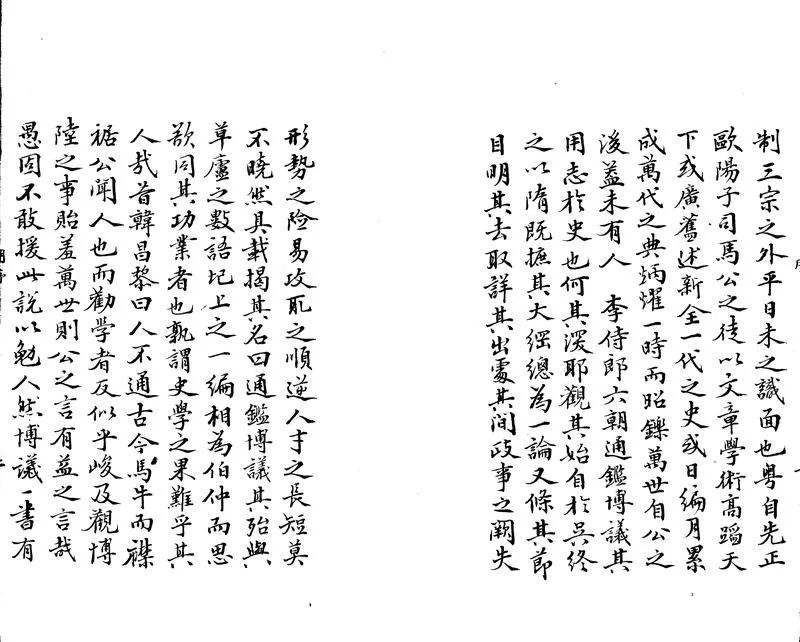 制三宗之外平日未之識面也粤自先正
歐陽子司馬公之徒以文章學術高蹈天
下或廣舊述新全一代之史或日編月累
成萬代之典炳燿一時而昭鑠萬世自公之
後葢未有人　李侍郎六朝通鑑博議其
用志於史也何其深耶觀其始自於吳終
之以隋既摭其大綱總為一論又條其節
目明其去取詳其出處其間政事之闕失
形勢之險易攻取之順逆人才之長短莫
不曉然具載揭其名曰通鑑博議其殆與
草廬之數語圯上之一編相為伯仲而思
欲同其功業者也孰謂史學之果難乎其
人哉昔韓昌黎曰人不通古今馬牛而襟
裾公聞人也而勸學者反似乎峻及觀博
陸之事貽羞萬世則公之言有益之言哉
愚固不敢援此說以勉人然博議一書有